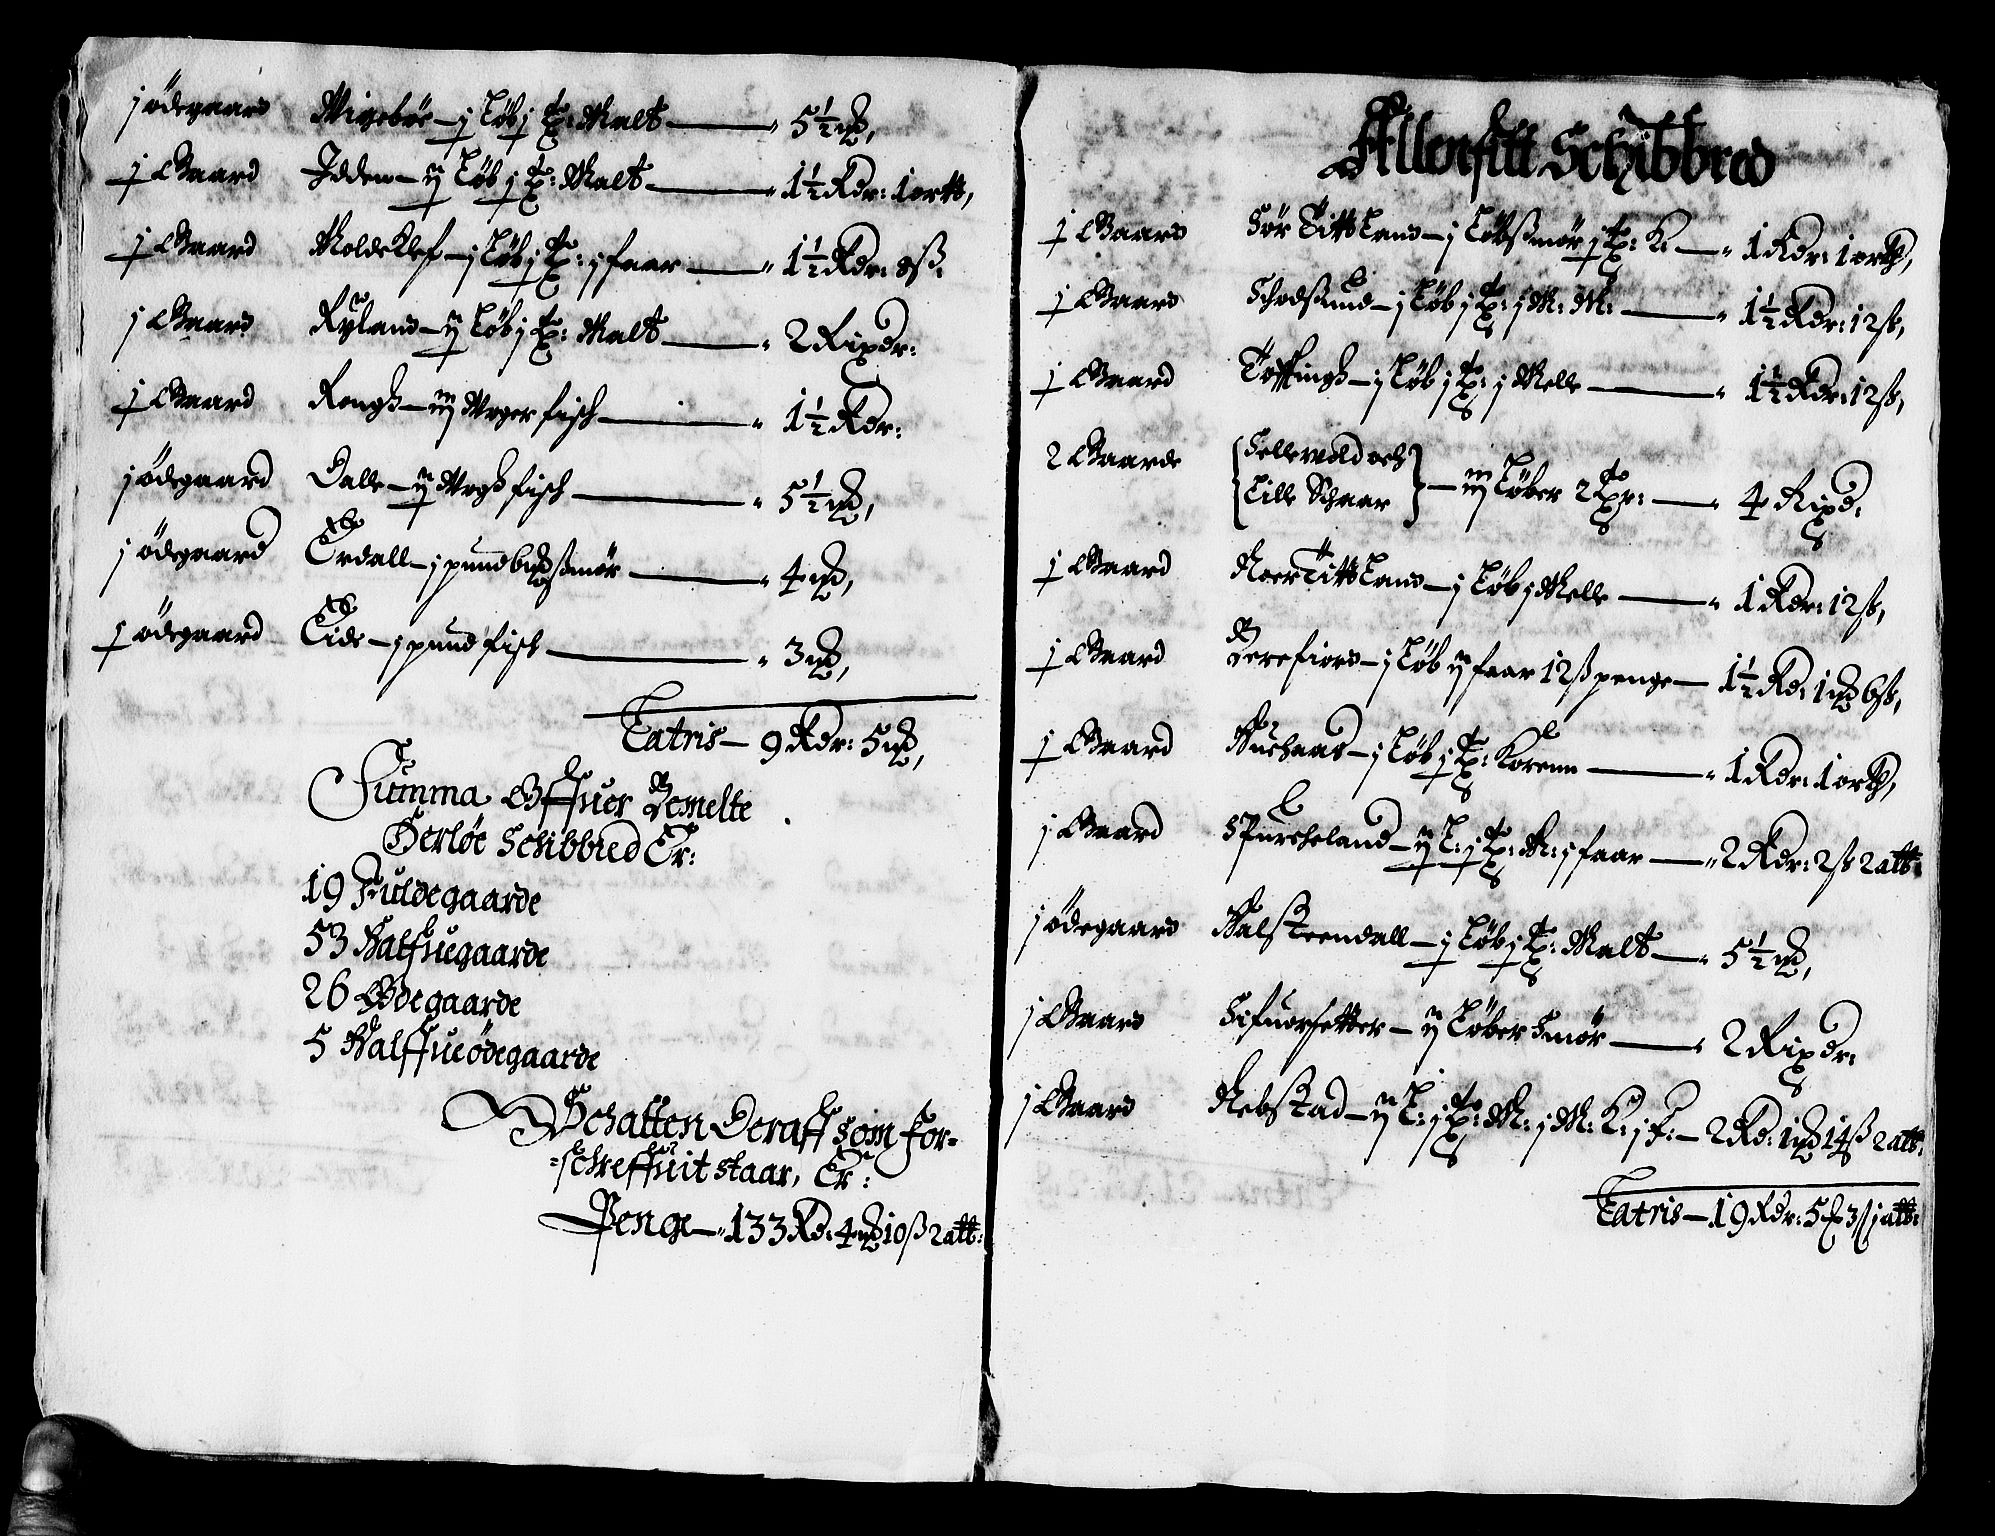 j ödegaard Migebøe — j Løb j Xp: Malt — 5½ ꝳ,
j Gaard Idden — ij Løb j Xp: Malt — 1½ Rdr: 1 ortt,
j Gaard Molde Klef — j Løb j Xp: j faar — 1½ Rdr: 8ß:
j Gaard Ryland — ij Løb j Xp: Malt — 2 Rixdr:
j Gaard Rongh — iij Woger fisch — 1½ Rdr:
j ödegaard Dalle — ij Wogh fisch — 5½ ꝳ,
j ödegaard Erdall — j pund 6 ꝳ smør — 4 ꝳ,
j ödegaard Eide — j pund fisk — 3 ꝳ,
Latris — 9 Rdr: 5 ꝳ,
Summa Offuer Bemelte
Herløe Schibbred Er:
19 Fuldegaarde
53 Halfuegaarde
26 Ødegaarde
5 Halffueödegaarde
Schatten Deraff som for-
=schreffuit staar, Er:
Penge — 133 Rd: 4 ꝳ 10 ß 2 alb:
Allenfitt Schibbred
j Gaard Sør Titt Land — j Løb Smør j Xp: K: — 1 Rdr: 1 orth,
j Gaard Schodsund — j Løb j Xp: j M: M: — 1½ Rdr: 12 ß,
j Gaard Toffingh — j Løb j Xp: j Melle — 1½ Rdr: 12 ß,
2 Gaarde Sellevold och Lille Schaar — iij Løber 2 Xpr: — 4 Rixd:
j Gaard Noer Titt Land — j Løb j Melle — 1 Rdr: 12 ß,
j Gaard Berefiord — j Løb ij faar 12 ß penge — 1½ Rd: 1 ꝳ 6 ß,
j Gaard Huschaas — j Løb j Xp: Korenn — 1 Rdr: 1 orth,
j Gaard Spurcheland — ij L: j Xp: M: j faar — 2 Rdr: 2 ß 2 alb:
j ödegaard Halsteendall — j Løb j Xp: Malt — 5½ ꝳ,
j Gaard Sifuorsetter — ij Løber Smør — 2 Rixdr:
j Gaard Rebstad — ij L: j Xp: M: j M: K: j F: — 2 Rd: 1 ꝳ 14 ß 2 alb:
Latris — 19 Rdr: 5 ꝳ 3 ß j alb: